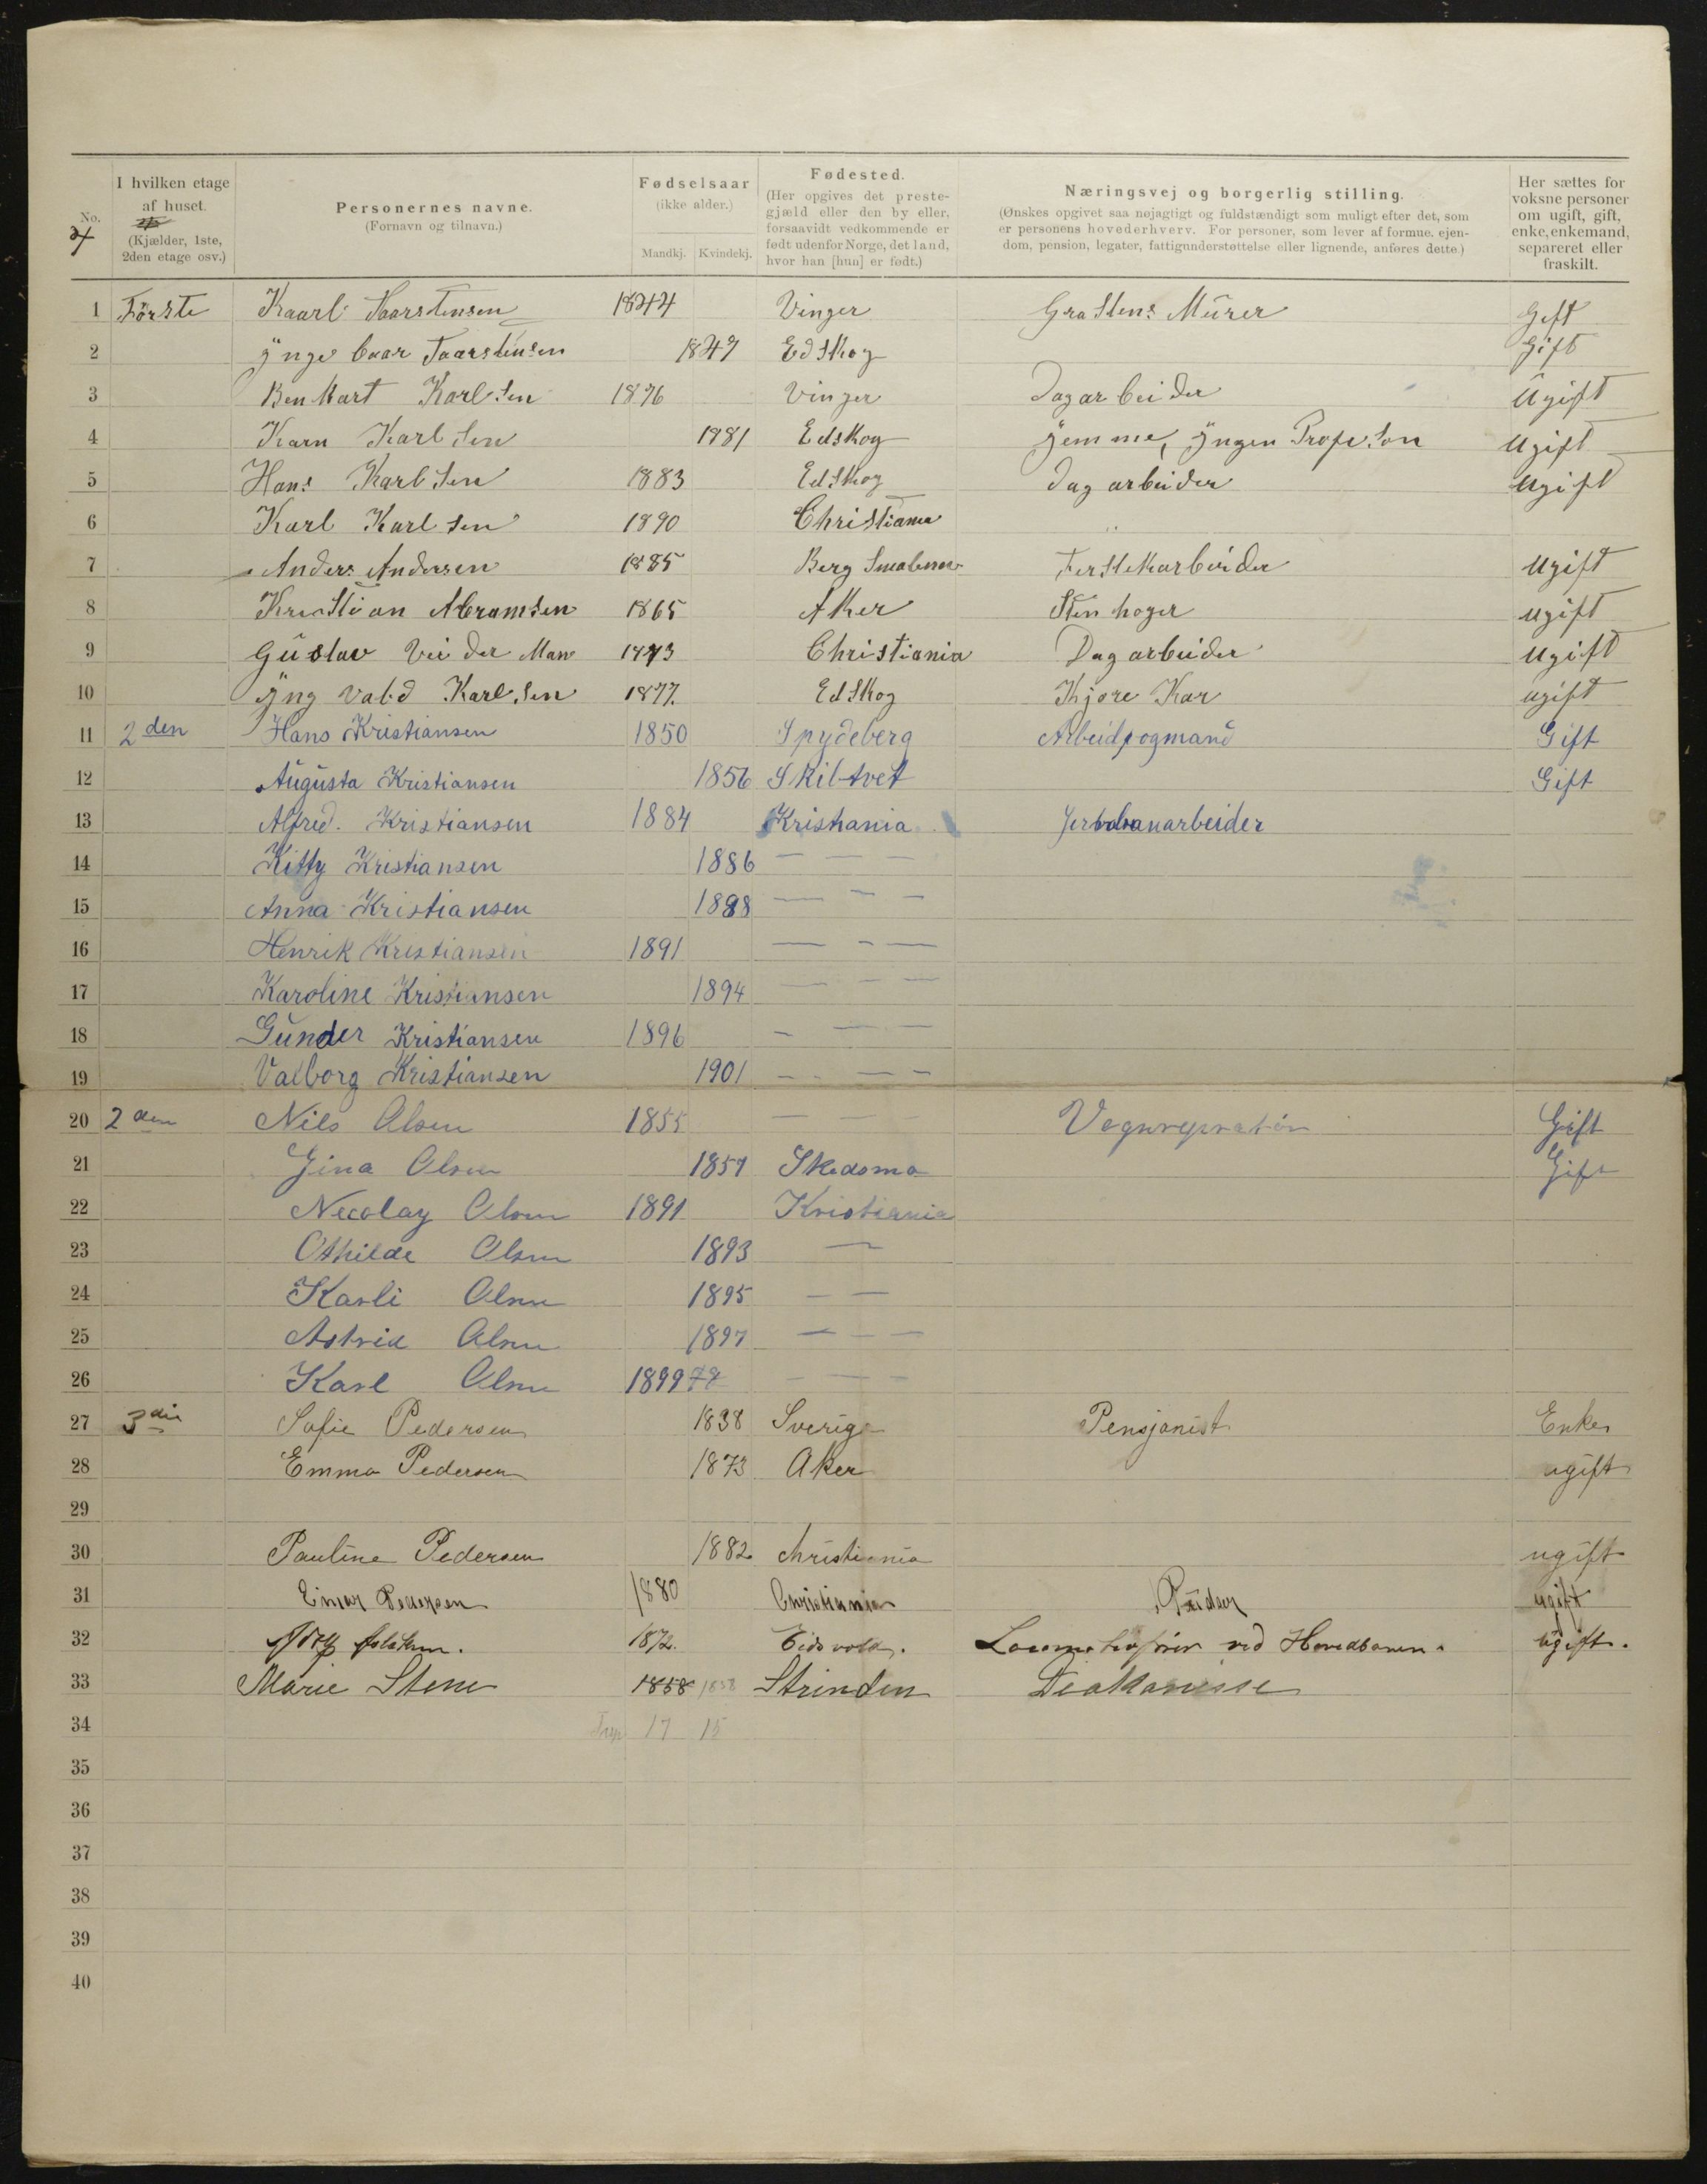 No.
I hvilken etage af huset. (Kjælder, 1ste, 2den etage osv.)
Personernes navne. (Fornavn og tilnavn.)
Fødselsaar (ikke alder.) Mandkj. Kvindekj.
Fødested. (Her opgives det prestegjæld eller den by eller, forsaavidt vedkommende er født udenfor Norge, det land, hvor han [hun] er født.)
Næringsvej og borgerlig stilling. (Ønskes opgivet saa nøjagtigt og fuldstændigt som muligt efter det, som er personens hovederhverv. For personer, som lever af formue, ejendom, pension, legater, fattigunderstøttelse eller lignende, anføres dette.)
Her sættes for voksne personer om ugift, gift, enke, enkemand, separeret eller fraskilt.
1 Förste Kaarl Taarstensen 1844 Vinger Gra Stens Mürer Gift
2 Jnge baar Taarstensen 1847 Ed Skog Gift
3 Ben Hart Karlsen 1876 Vinger Dagarbeider Ügift
4 Karn Karlsen 1881 Edskog Jemme, Jngen Profeson Ugift
5 Hans Karlsen 1883 Edskog Dagarbeider Ugift
6 Karl Karlsen 1890 Christiania
7 Anders Andersen 1885 Berg Ugift
8 Kristian Abramsen 1865 Aker Sten hoger Ugift
9 Güstav Vei der Man Christiania Dagarbeider Ugift
10 Jng vald Karlsen 1877. Edskog Kjøre Kar ugift
11 2den Hans Kristiansen 1850 Spydeberg Gift
12 Augusta Kristiansen 1856 Skibtvet Gift
13 Alfred. Kristiansen 1884 Kristiania Jerbanarbeider
14 Kitty Kristiansen 1886 — — —
15 Anna Kristiansen 1888 — — —
16 Henrik Kristiansen 1891 — — —
17 Karoline Kristiansen 1894 — — —
18 Gunder Kristiansen 1896 — — —
19 Valborg Kristiansen 1901 — — —
20 2den Nils Olsen 1855 — — — Vognrepratør Gift
21 Gina Olsen 1857 Skedsmo Gift
22 Necolay Olsen 1891 Kristiania
23 Othilde Olsen 1893 —
24 Karli Olsen 1895 — —
25 Astrid Olsen 1897 — — —
26 Karl Olsen 1899 — — —
27 3die Sofie Pedersen 1838 Sverige Pensjonist Enke
28 Emma Pedersen 1873 Aker ugift
29
30 Pauline Pedersen 1882 Christiania ugift
31 Einar Pedersen 1880 Christiania ugift
32 1872. Eidsvold. Locomotivfører ved Hovedbanen. ugift.
33 Marie Stene 1858 1858 Strinden Diakonisse
34 17 15
35
36
37
38
39
40